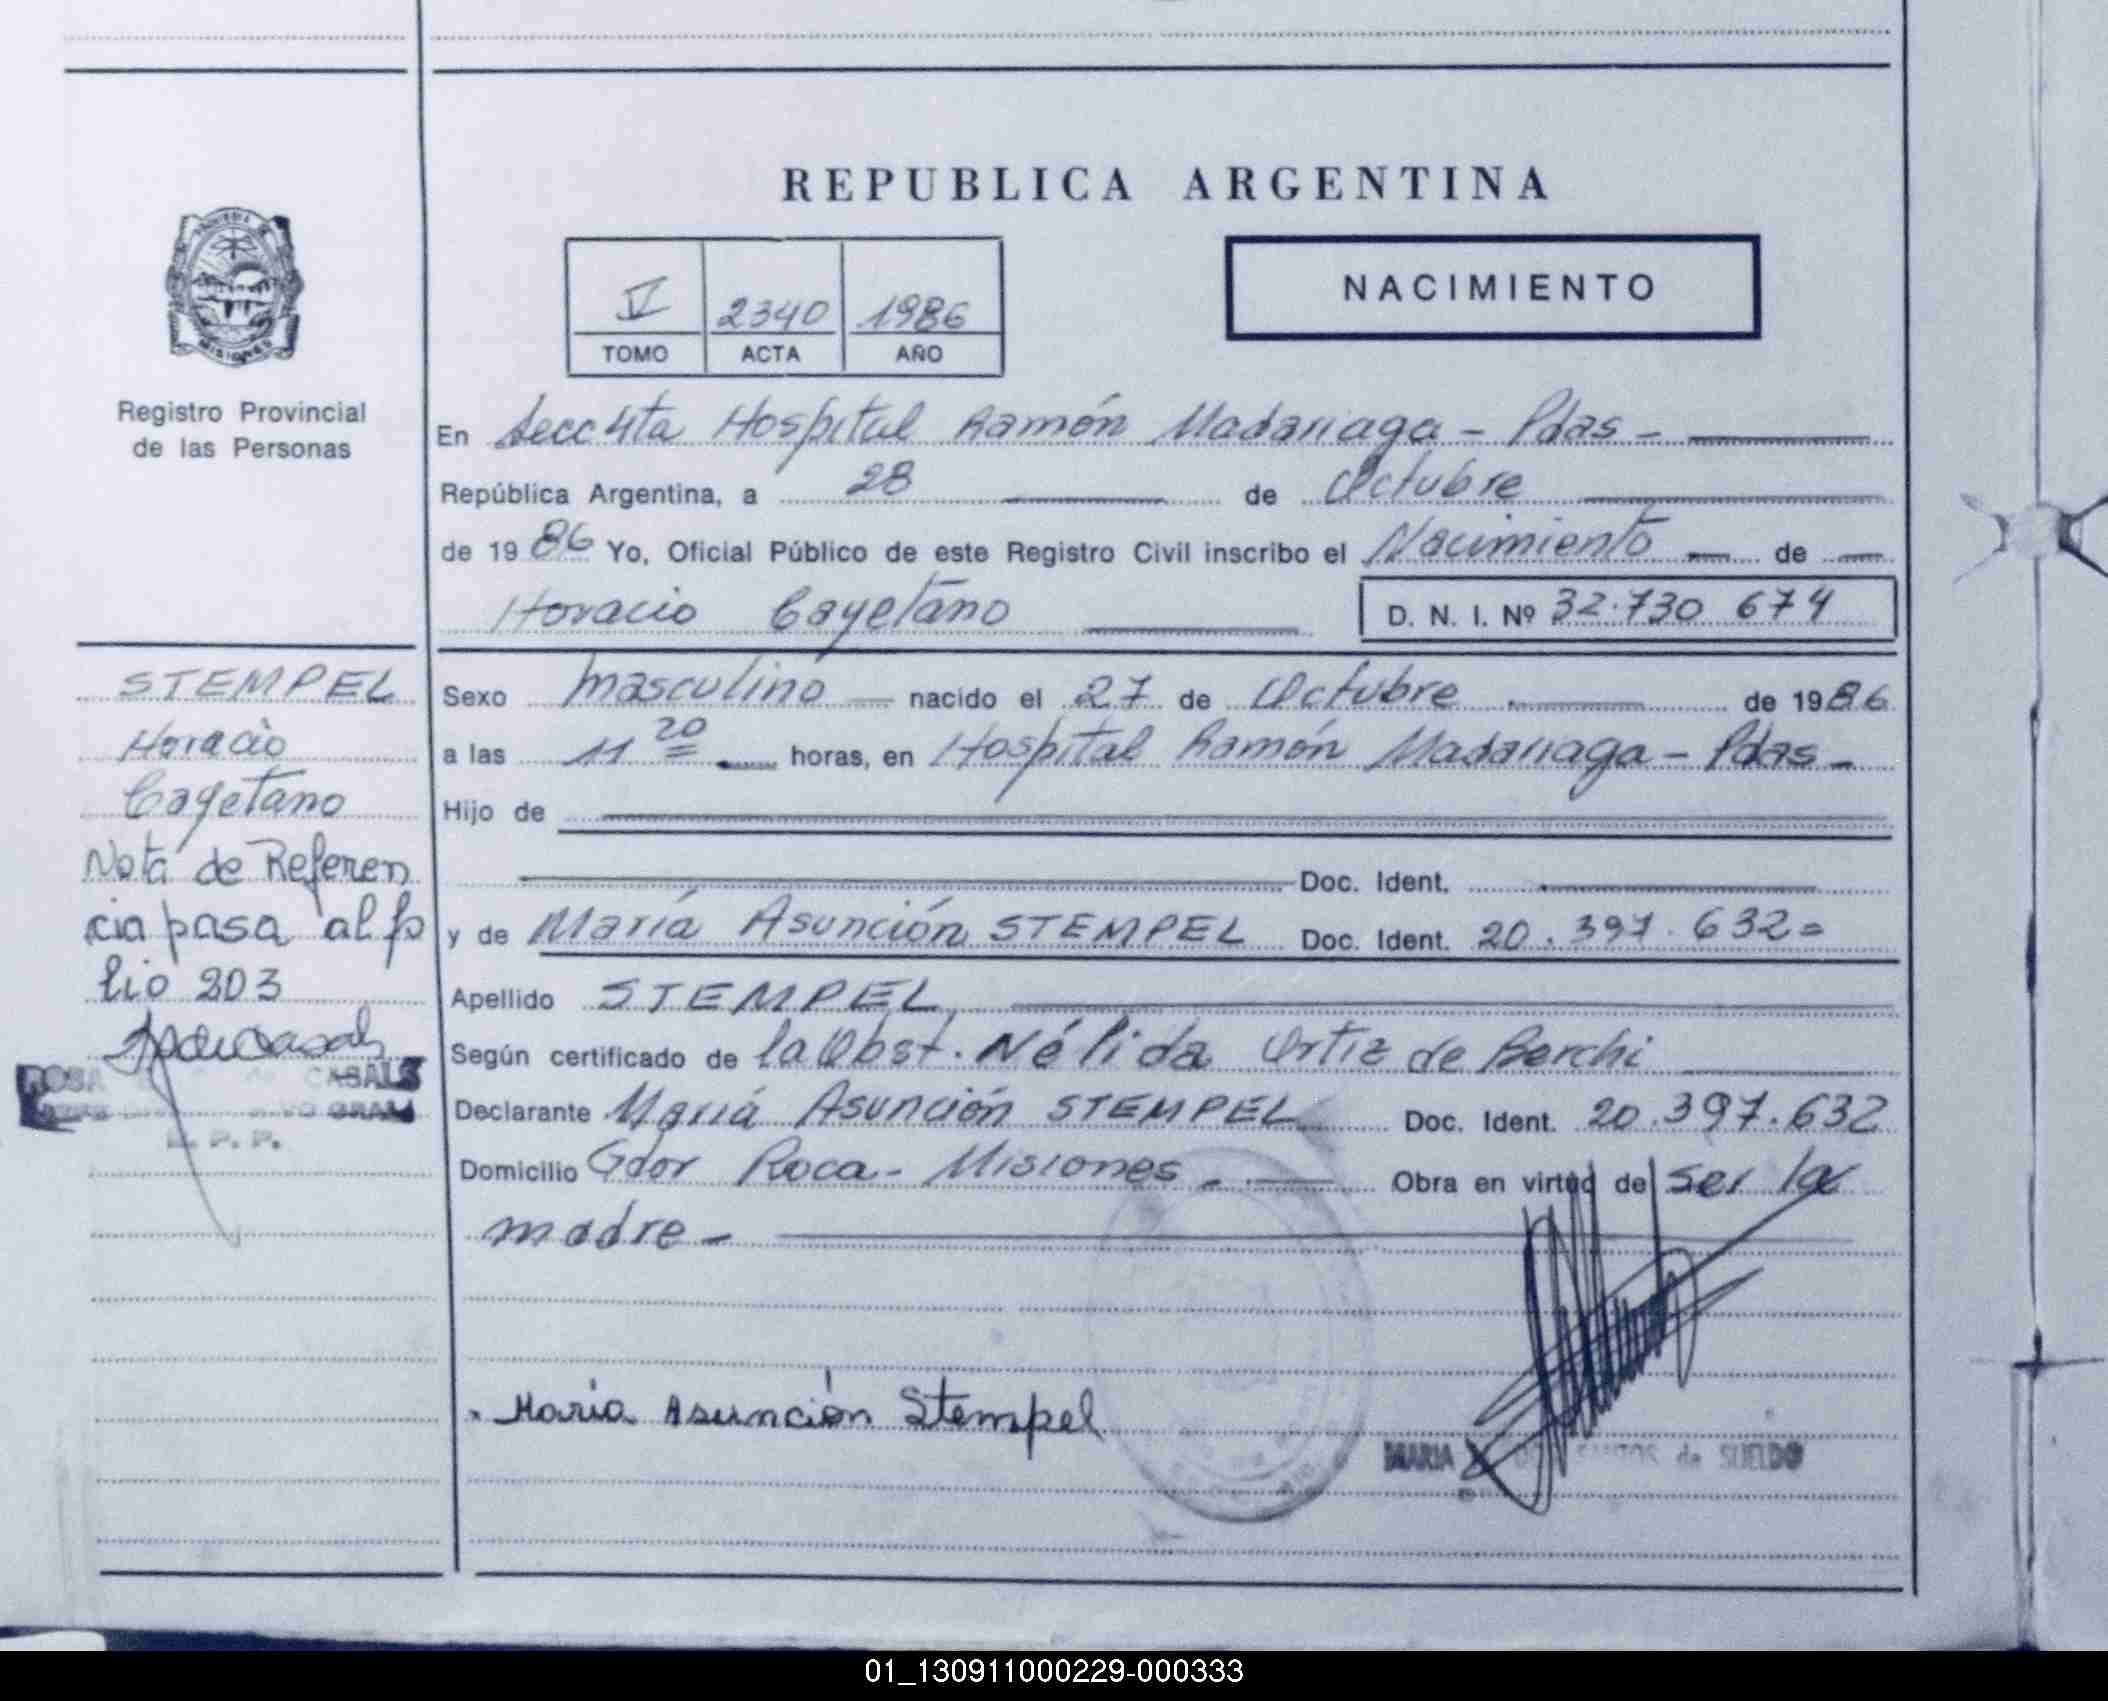 REPUBLICA ARGENTINA
PROVINCIA DE
MISIONES
Registro Provincial
de las Personas
V 2340 1986
TOMO ACTA AÑO
NACIMIENTO
En Secc 4ta Hospital Ramón Madariaga - Pdas -
República Argentina, a 28 de Octubre
de 1986 Yo, Oficial Público de este Registro Civil inscribo el Nacimiento de
Horacio Cayetano D. N. I. Nº 32.730 674
STEMPEL
Horacio
Cayetano
Nota de Referen
cia pasa al fo
lio 203
ROSA de CASALS
GRAL
P. P.
Sexo masculino nacido el 27 de Octubre de 1986
a las 11 20 horas, en Hospital Ramón Madariaga - Pdas -
Hijo de
Doc. Ident.
y de María Asunción STEMPEL Doc. Ident. 20.397.632=
Apellido STEMPEL
Según certificado de la Obst. Nélida Ortiz de Berchi
Declarante María Asunción STEMPEL Doc. Ident. 20.397.632
Domicilio Gdor Roca - Misiones - Obra en virtud de ser la
madre -
María Asunción Stempel
MARIA SANTOS de SUELDO
01_130911000229-000333